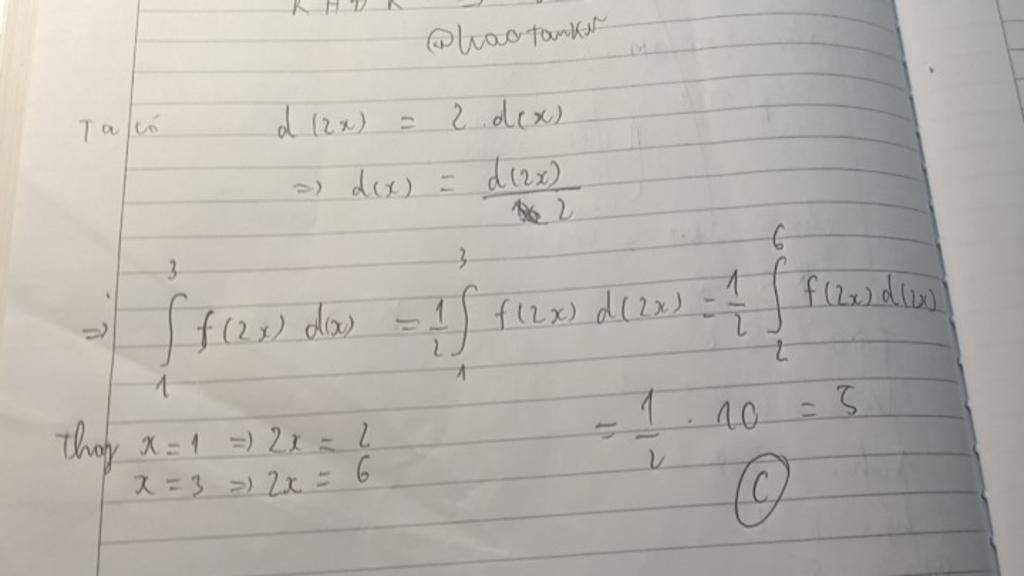 @haotankur
Ta có d(2x) = 2.d(x)
=> d(x) = d(2x)/2
=> ∫₁³ f(2x) d(x) = 1/2 ∫₁³ f(2x) d(2x) = 1/2 ∫₂⁶ f(2x) d(2x)
= 1/2 . 10 = 5
Thay x = 1 => 2x = 2
x = 3 => 2x = 6
C